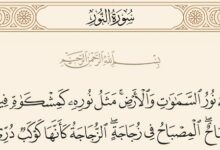 سُورَةُ النُّورِ
بِسْمِ اللَّهِ الرَّحْمَٰنِ الرَّحِيمِ
نُورُ السَّمَٰوَٰتِ وَالْأَرْضِ مَثَلُ نُورِهِ كَمِشْكَوٰةٍ
الْمِصْبَاحُ فِي زُجَاجَةٍ الزُّجَاجَةُ كَأَنَّهَا كَوْكَبٌ